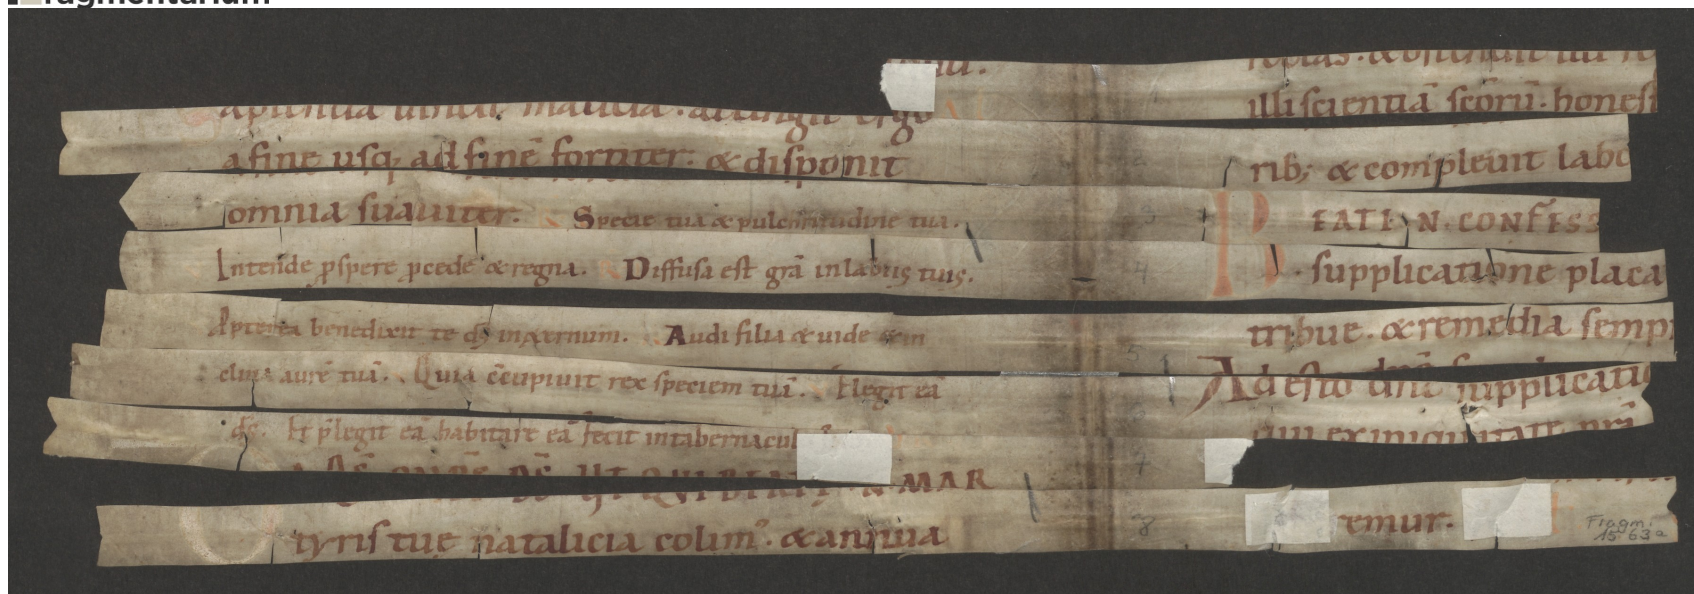 ragmentarium
apientia uincit malicia. attingit ergo
a fine usq; ad finē fortiter. & disponit
omnia suauiter. Specie tua & pulchritudine tua.
Intende ꝓspere ꝓcede & regna. Diffusa est grā in labiis tuis.
Apterea benedixit te d̄s in æternum. Audi filia & uide & in
clina aurē tuā. Quia c̄cupiuit rex speciem tuā. Elegit eā
d̄s. Et p̄legit eā habitare eā fecit in tabernacul
D̄S UT QUI BEATI N MAR
tyris tuę natalicia colim᷒. & annua
illi scientiā scōrū. honest
rib; & compleuit labo
EATI N. CONFESS
supplicatione placa
tribue. & remedia semp
Adesto dnē supplicati
qui ex iniquitate nrī
remur.
1
2
3
4
5
6
7
8
Fragm.
15 63a